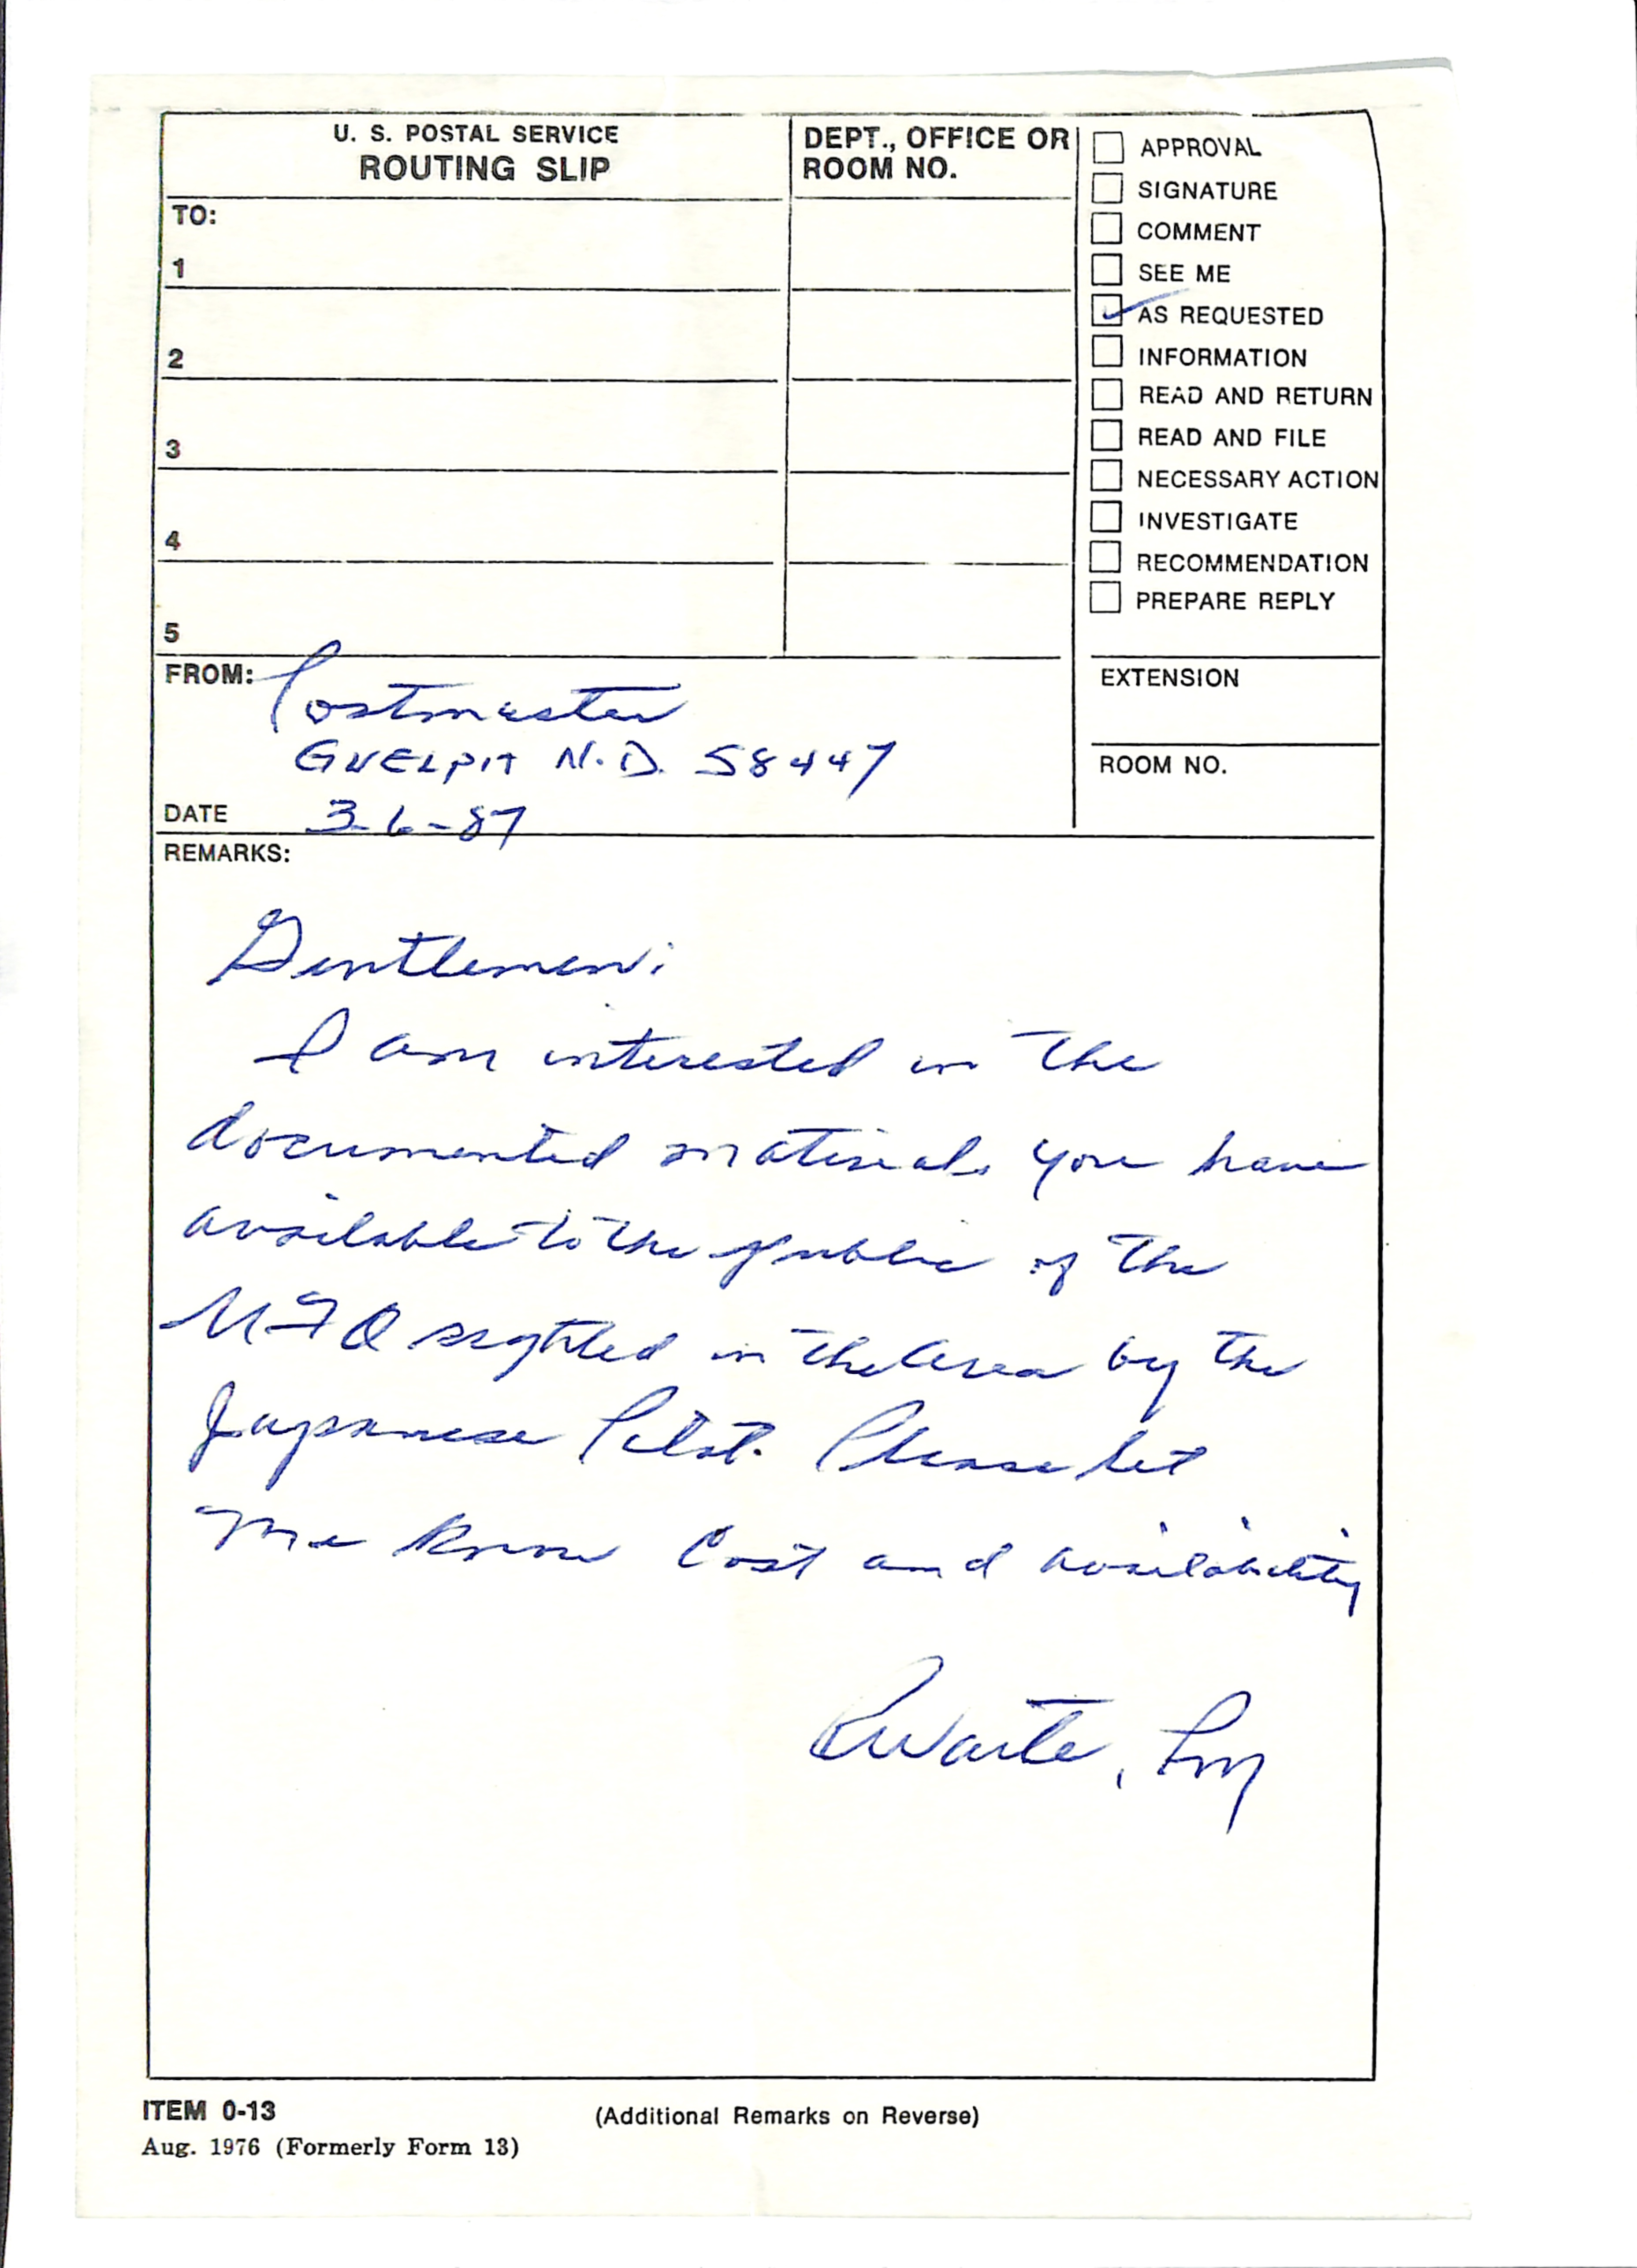 U. S. POSTAL SERVICE
ROUTING SLIP
DEPT., OFFICE OR
ROOM NO.
TO:
1
2
3
4
5
APPROVAL
SIGNATURE
COMMENT
SEE ME
✓ AS REQUESTED
INFORMATION
READ AND RETURN
READ AND FILE
NECESSARY ACTION
INVESTIGATE
RECOMMENDATION
PREPARE REPLY
FROM: Postmaster
GUELPH N.D. 58447
DATE 3-6-87
EXTENSION
ROOM NO.
REMARKS:
Gentlemen:
I am interested in the
documented materials you have
available to the public of the
UFO sighted in the area by the
Japanese Pilot. Please let
me know Cost and availability
RWaite, Pm
ITEM 0-13
(Additional Remarks on Reverse)
Aug. 1976 (Formerly Form 13)